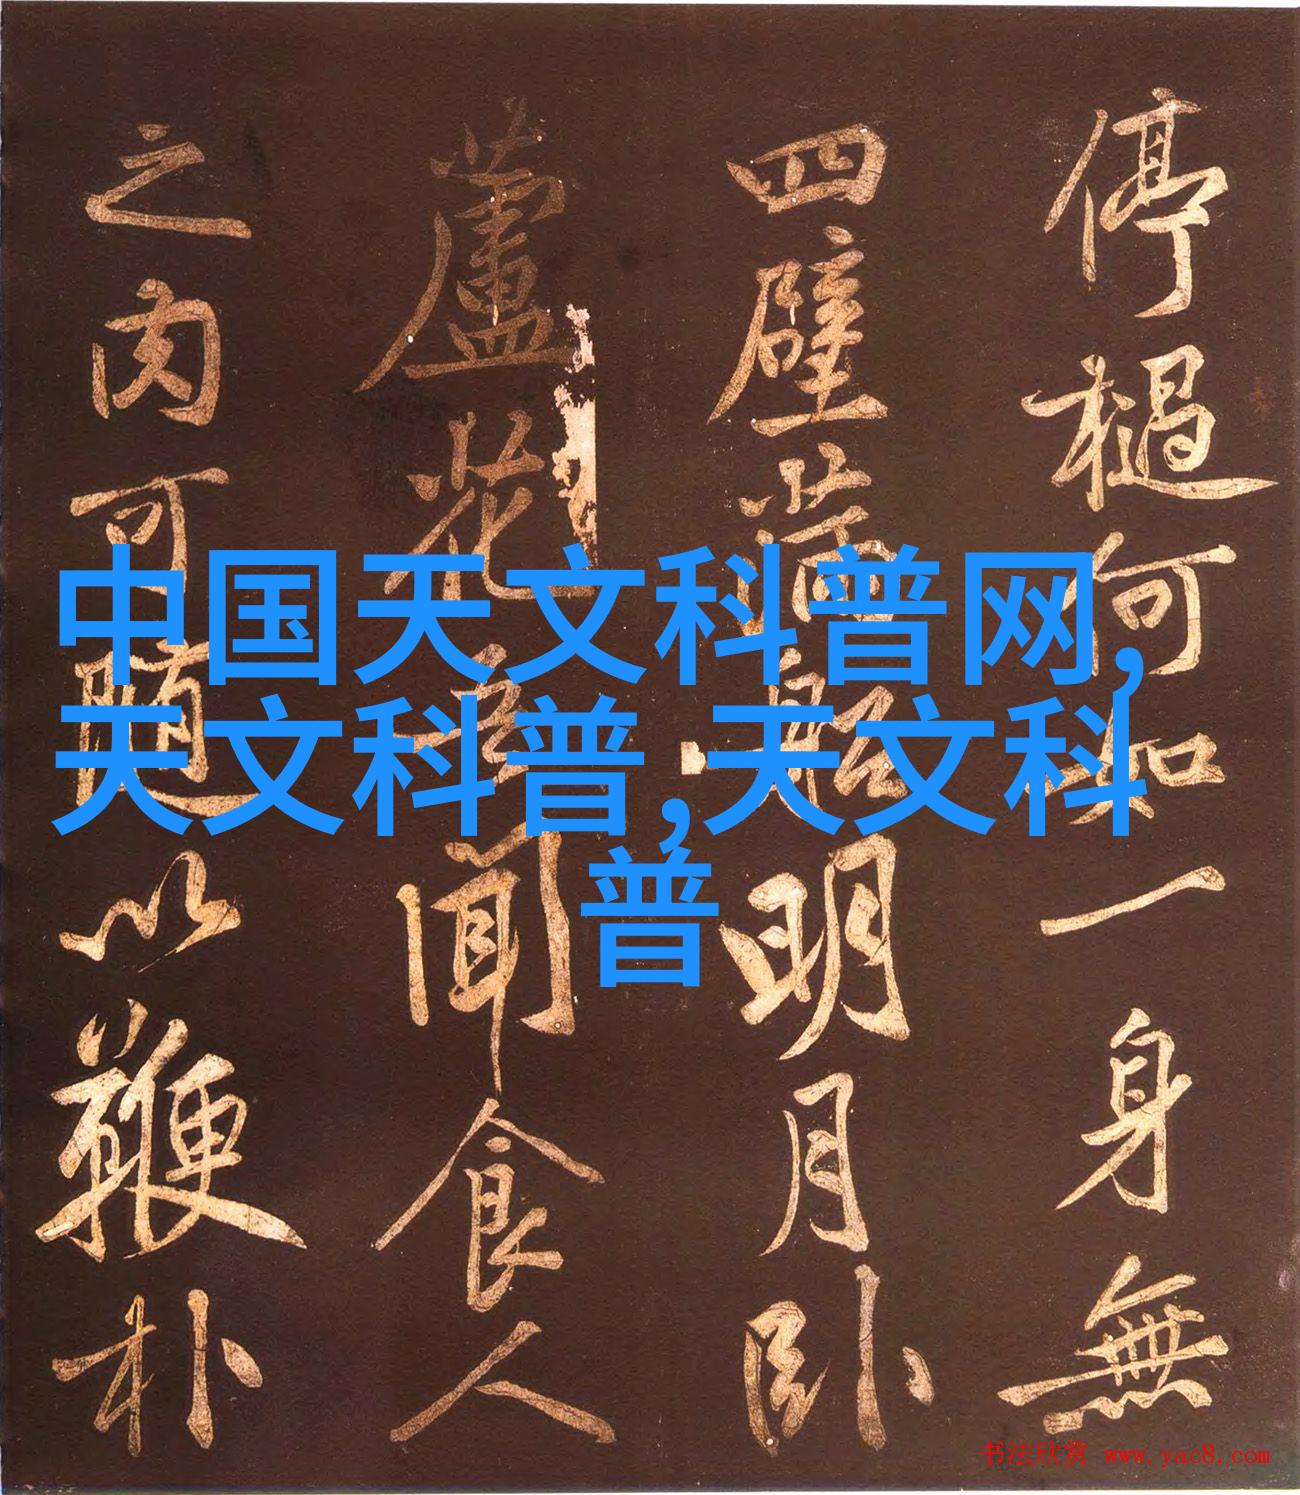 中国天文科普网,
天文科普,天文科
普
停檛何如一身無
四壁滿船明月卧
蘆花吾聞食人
之肉可随以鞭朴
书法欣赏 www.yac8.com